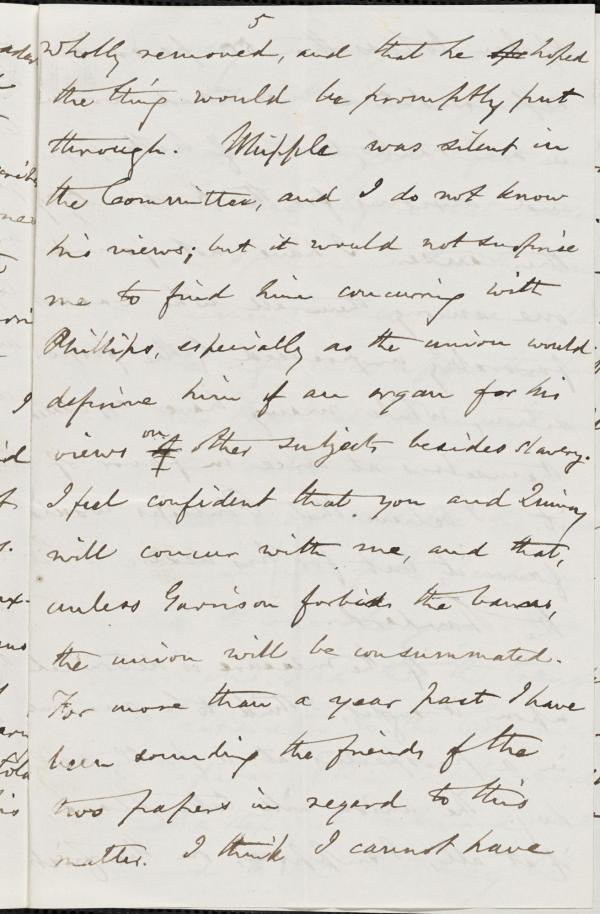 5
wholly removed, and that he hoped
the thing would be promptly put
through. Whipple was silent in
the Committee, and I do not know
his views; but it would not surprise
me to find him concurring with
Phillips, especially as the union would
deprive him of an organ for his
views on other subjects besides slavery.
I feel confident that you and Quincy
will concur with me, and that,
unless Garrison forbids the banns,
the union will be consummated.
For more than a year past I have
been sounding the friends of the
two papers in regard to this
matter. I think I cannot have